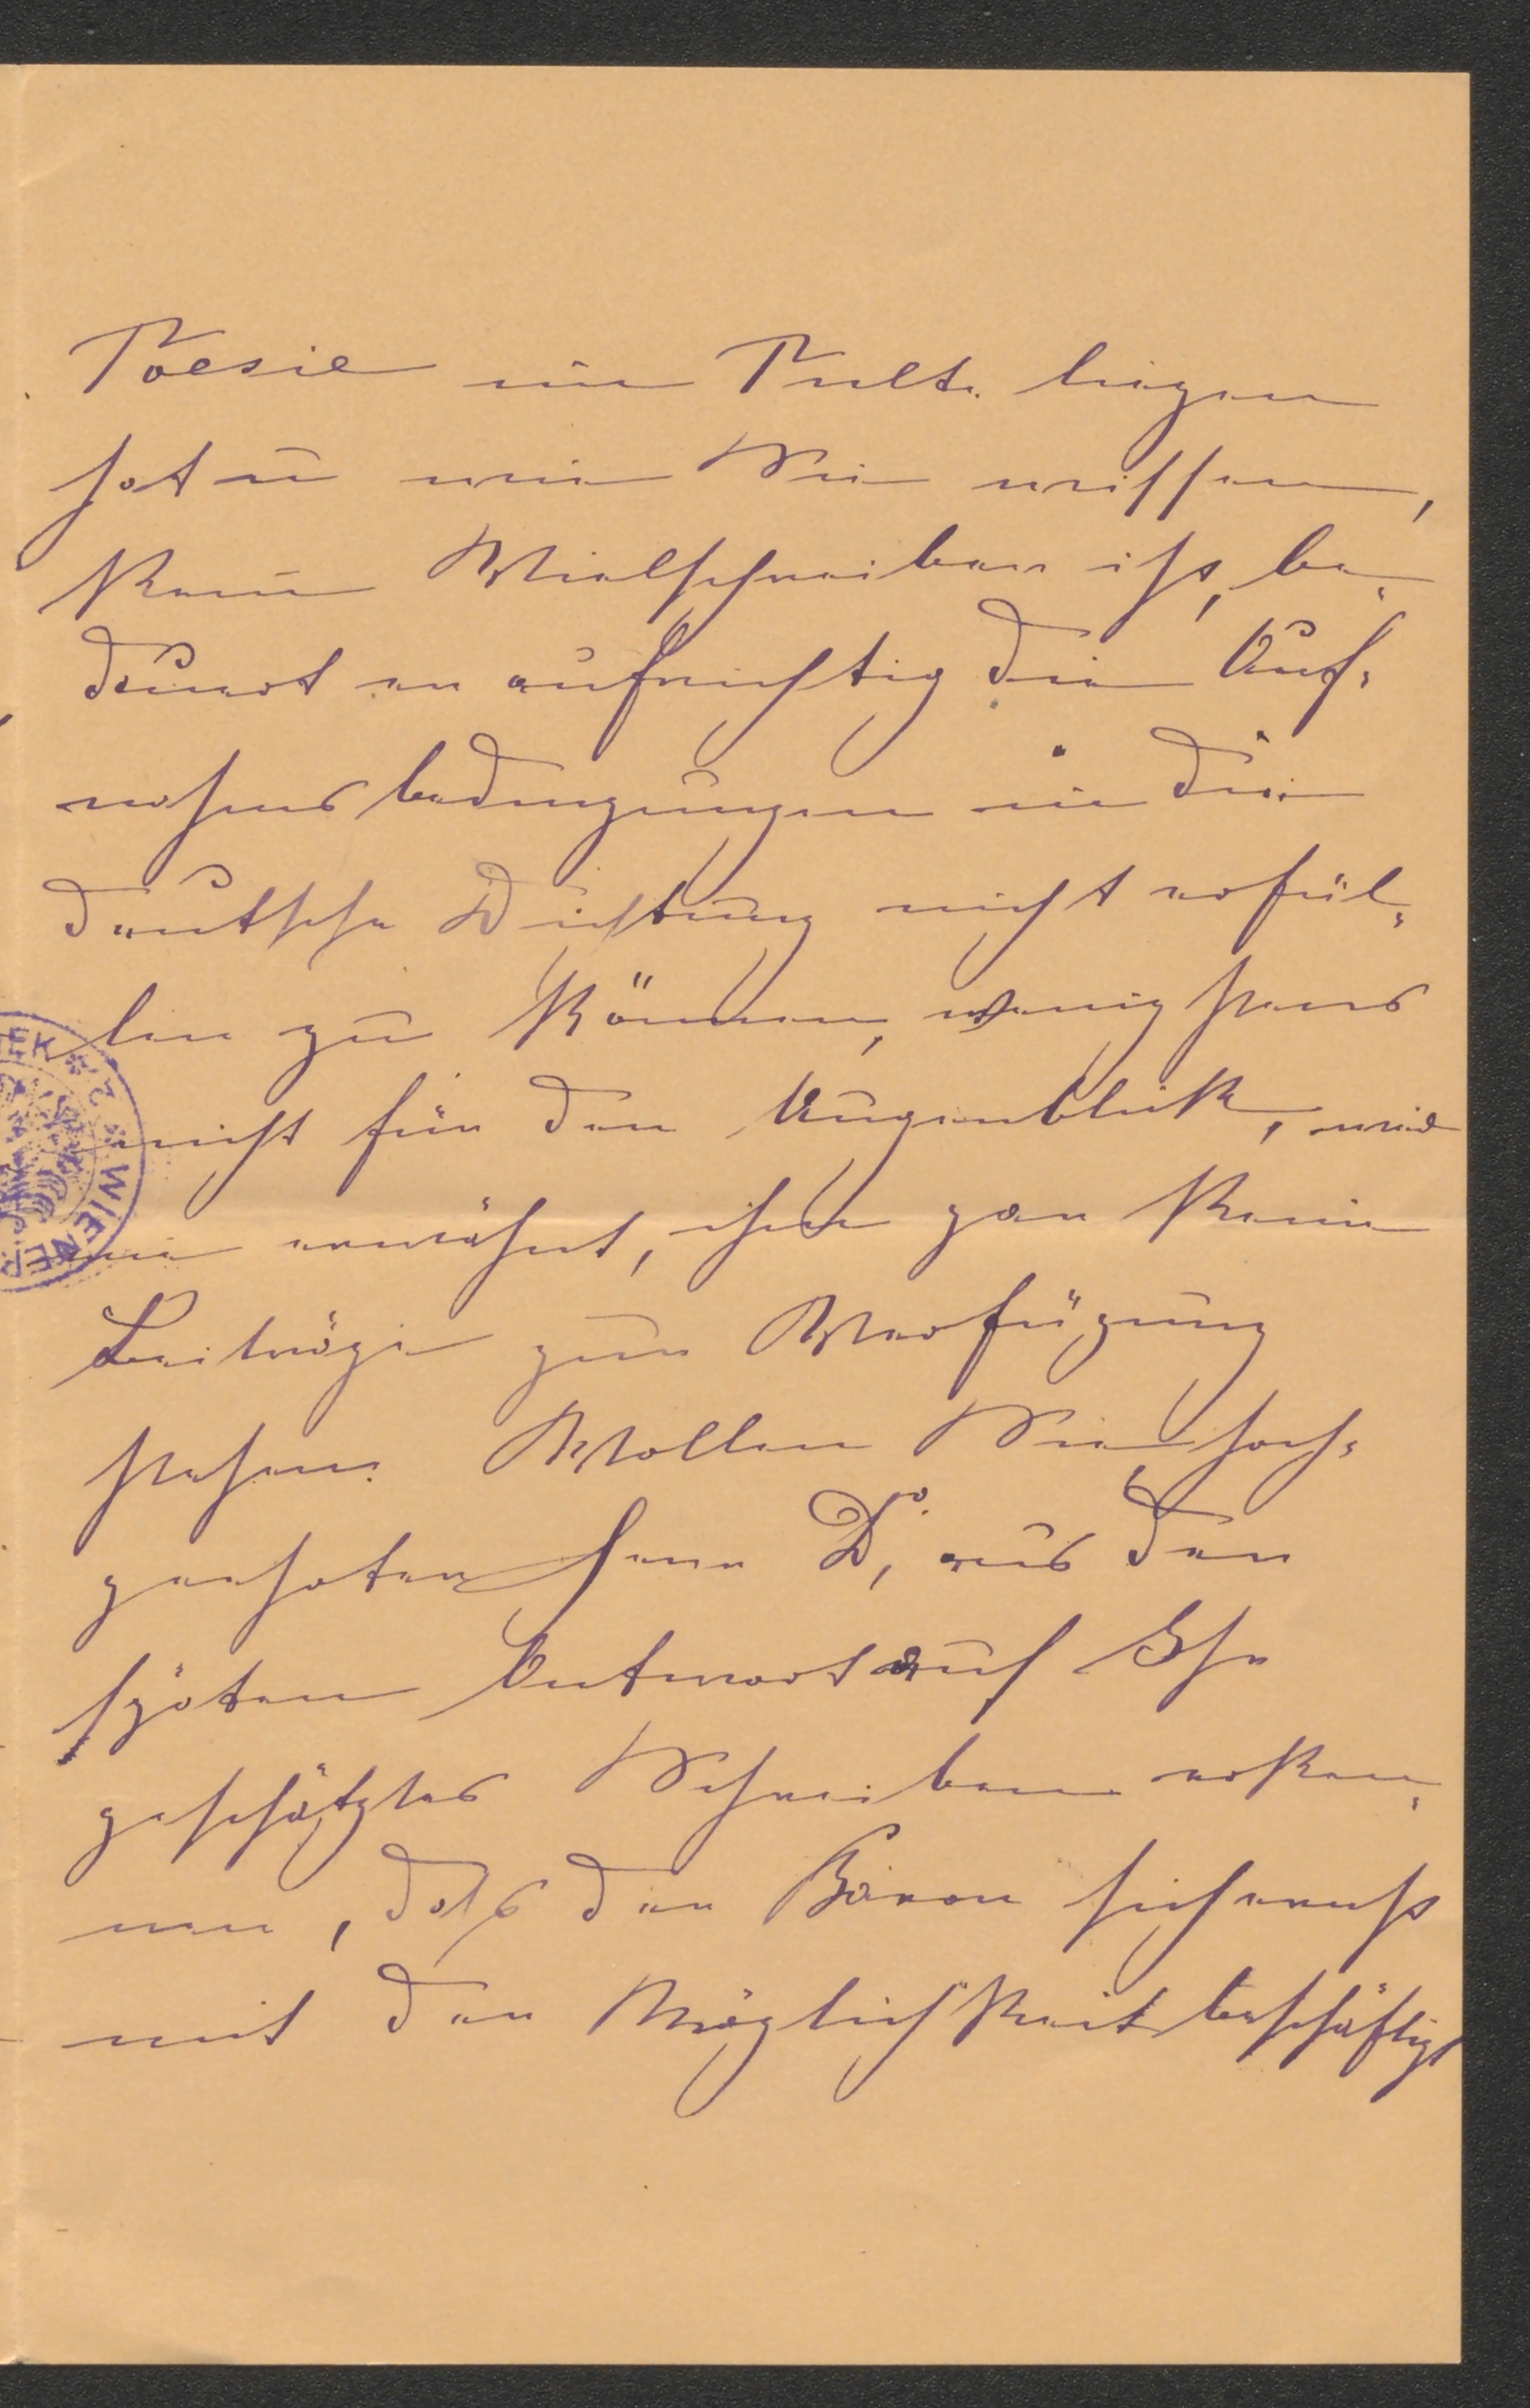 Poesie im Pulte liegen
hat u wie Sie wissen,
kein Vielschreiber ist, be„
dauert er aufrichtig die Auf„
nahmsbedingungen in die
deutsche Dichtung nicht erfül„
len zu können, wenigstens
nicht für den Augenblick, wie
erwähnt, ihm gar keine
Beiträge zur Verfügung
stehen. Wollen Sie hoch„
geehrter Herr Dr, aus der
späten Antwort auf Ihr
geschätztes Schreiben erken„
nen, daß der Baron sich ernst
mit der Möglichkeit beschäftigt
EK * Z * WIENER